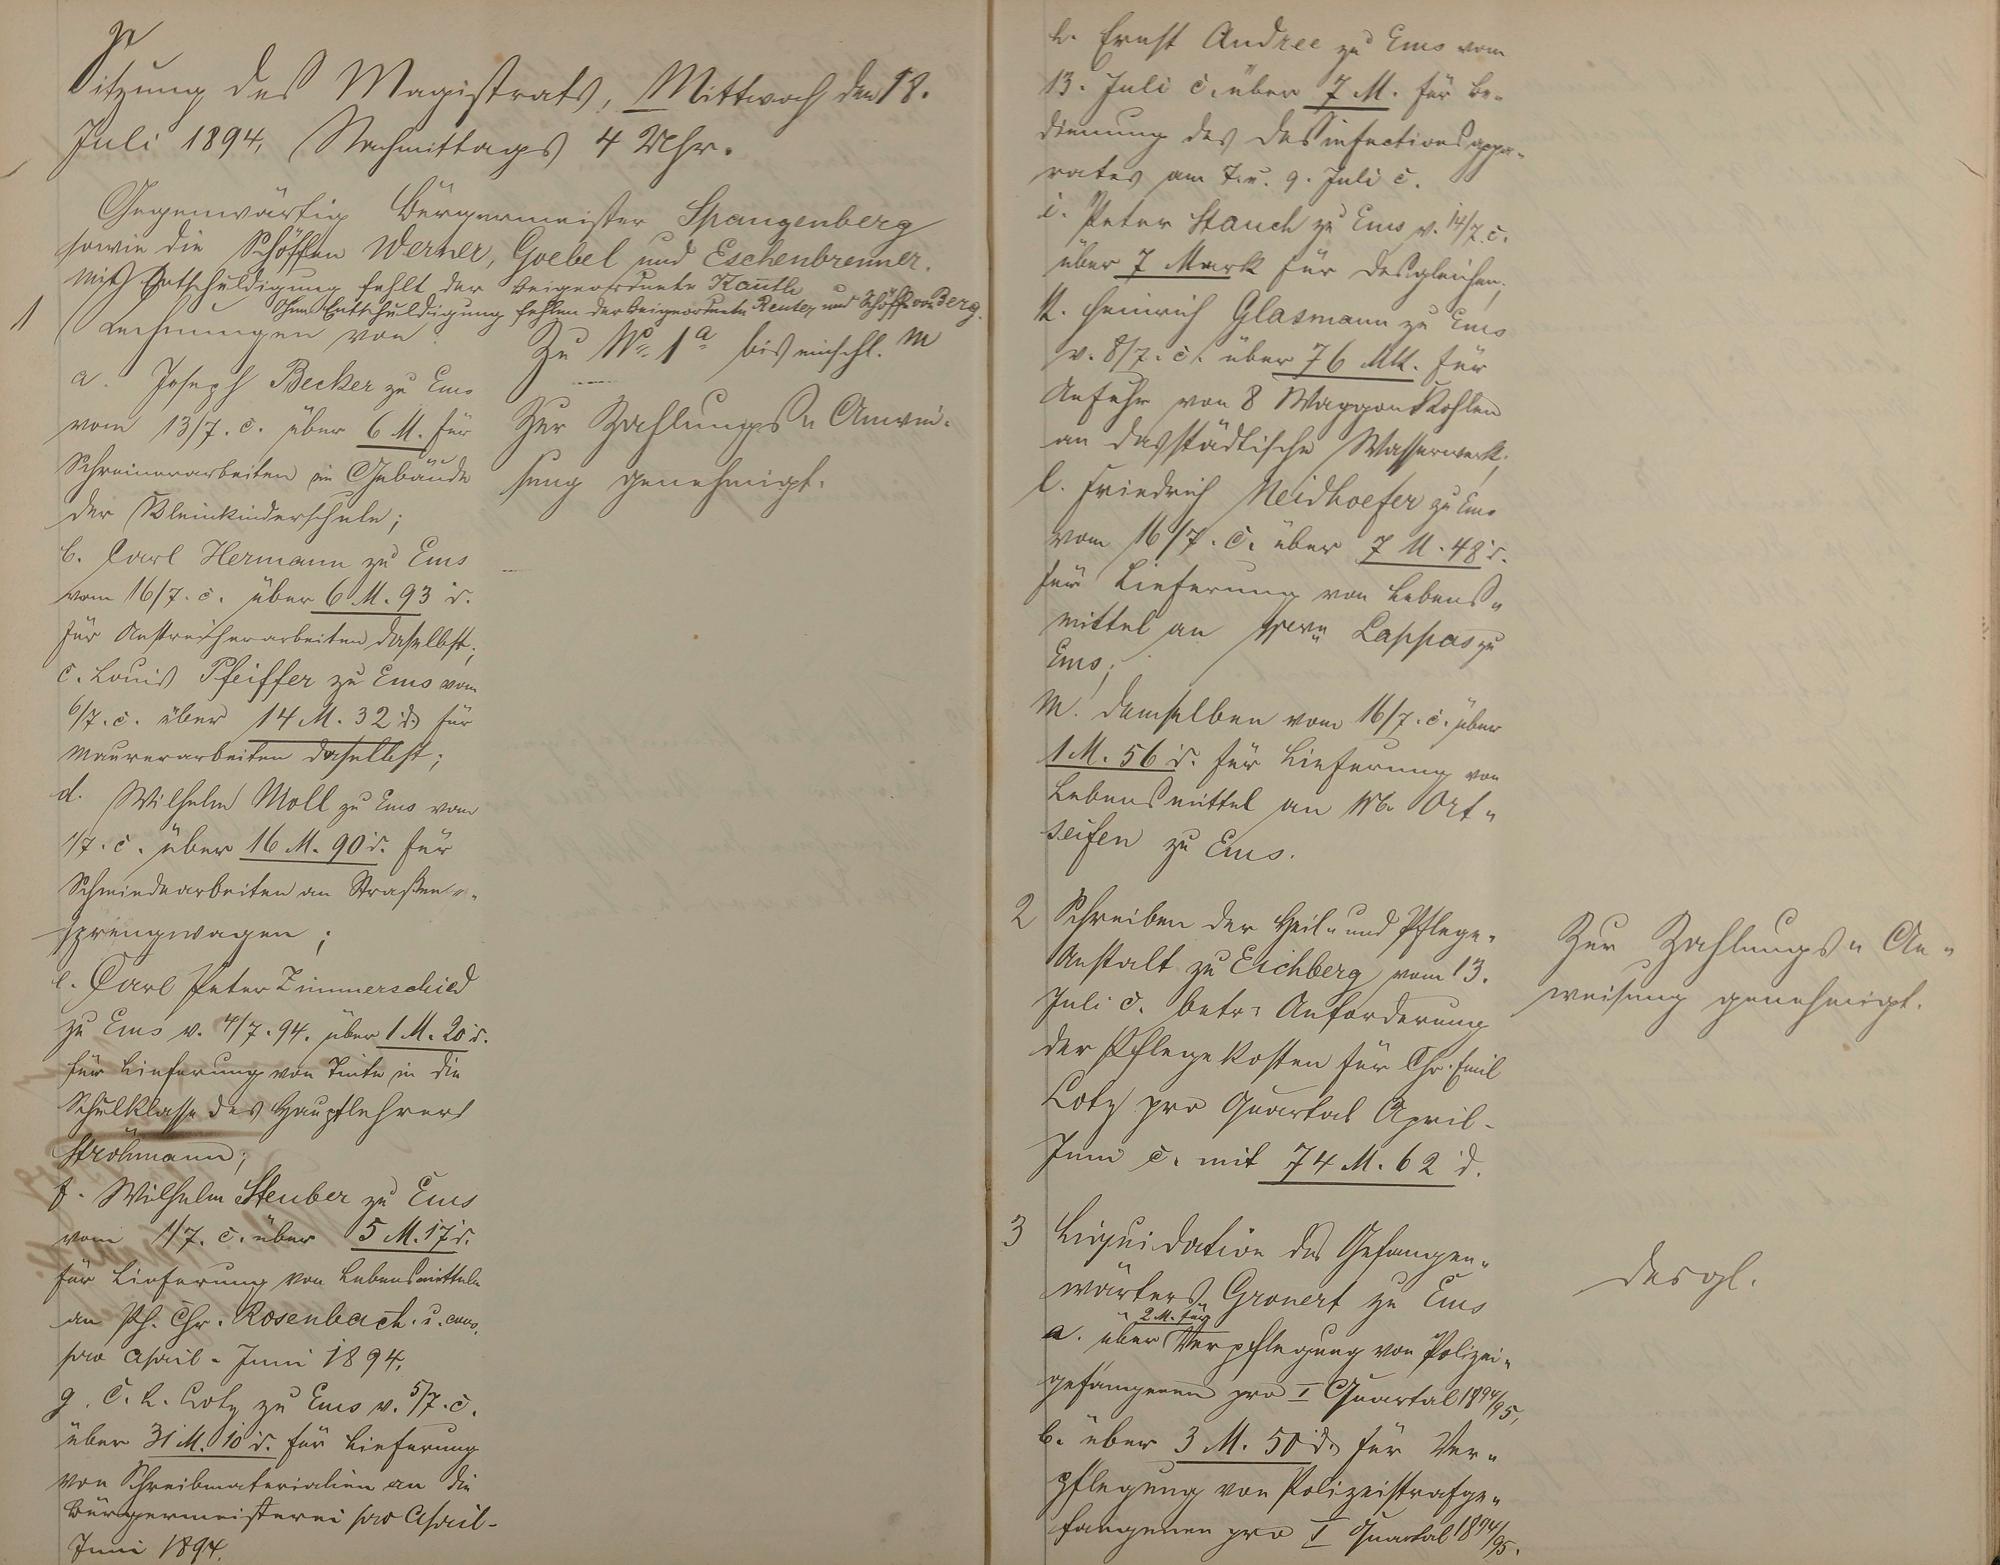 Sitzung des Magistrats, Mittwoch den 18.
Juli 1894, Nachmittags 4 Uhr.
Gegenwärtig Bürgermeister Spangenberg
sowie die Schöffen Werner, Goebel und Eschenbrenner.
Mit Entschuldigung fehlt der Beigeordnete Kauth
Ohne Entschuldigung fehlen der Beigeordnete Reuter und Schöffe von Berg.
1 Rechnungen von
a. Joseph Becker zu Ems
vom 13/7. c. über 6 M. für
Schreinerarbeiten im Gebäude
der Kleinkinderschule;
b. Carl Hermann zu Ems
vom 16/7. c. über 6 M. 93 d.
für Anstreicherarbeiten daselbst;
c. Louis Pfeiffer zu Ems vom
6/7. c. über 14 M. 32 d. für
Maurerarbeiten daselbst;
d. Wilhelm Moll zu Ems vom
1/7. c. über 16 M. 90 d. für
Schmiedearbeiten an Straßen-
sprengwagen;
e. Carl Peter Zimmerschied
zu Ems v. 4/7. 94. über 1 M. 20 d.
für Lieferung von Tinte in die
Schulklasse des Hauptlehrers
Ströhmann;
f. Wilhelm Steuber zu Ems
vom 1/7. c. über 5 M. 17 d.
für Lieferung von Lebensmitteln
an Ph. Chr. Rosenbach u. cons.
pro April-Juni 1894.
g. C. L. Lotz zu Ems v. 5/7. c.
über 31 M. 10 d. für Lieferung
von Schreibmaterialien an die
Bürgermeisterei pro April-
Juni 1894.
Zu No. 1a bis einschl. m
Zur Zahlungs-Anwei-
sung genehmigt.
h. Ernst Andree zu Ems vom
13. Juli c. über 7 M. für Be-
dienung des Desinfectionsappa-
rates am 7. u. 9. Juli c.
i. Peter Stauch zu Ems v. 14/7. c.
über 7 Mark für desgleichen;
k. Heinrich Glasmann zu Ems
v. 8/7. c. über 76 Mk. für
Anfuhr von 8 Waggon Kohlen
an das städtische Wasserwerk;
l. Friedrich Neidhoefer zu Ems
vom 16/7. c. über 7 M. 48 d.
für Lieferung von Lebens-
mittel an Lappas zu
Ems;
m. demselben vom 16/7. c. über
1 M. 56 d. für Lieferung von
Lebensmittel an Wb. Ort-
seifen zu Ems.
2 Schreiben der Heil- und Pflege-
Anstalt zu Eichberg vom 13.
Juli c. betr: Anforderung
der Pflegekosten für Chr. Emil
Lotz pro Quartal April-
Juni c. mit 74 M. 62 d.
Zur Zahlungs-An-
weisung genehmigt.
3 Liquidation des Gefangen-
wärters Gronert zu Ems
a. über 2 M. für Verpflegung von Polizei-
gefangenen pro I Quartal 1894/95,
b. über 3 M. 50 d. für Ver-
pflegung von Polizeistrafge-
fangenen pro I Quartal 1894/95.
desgl.